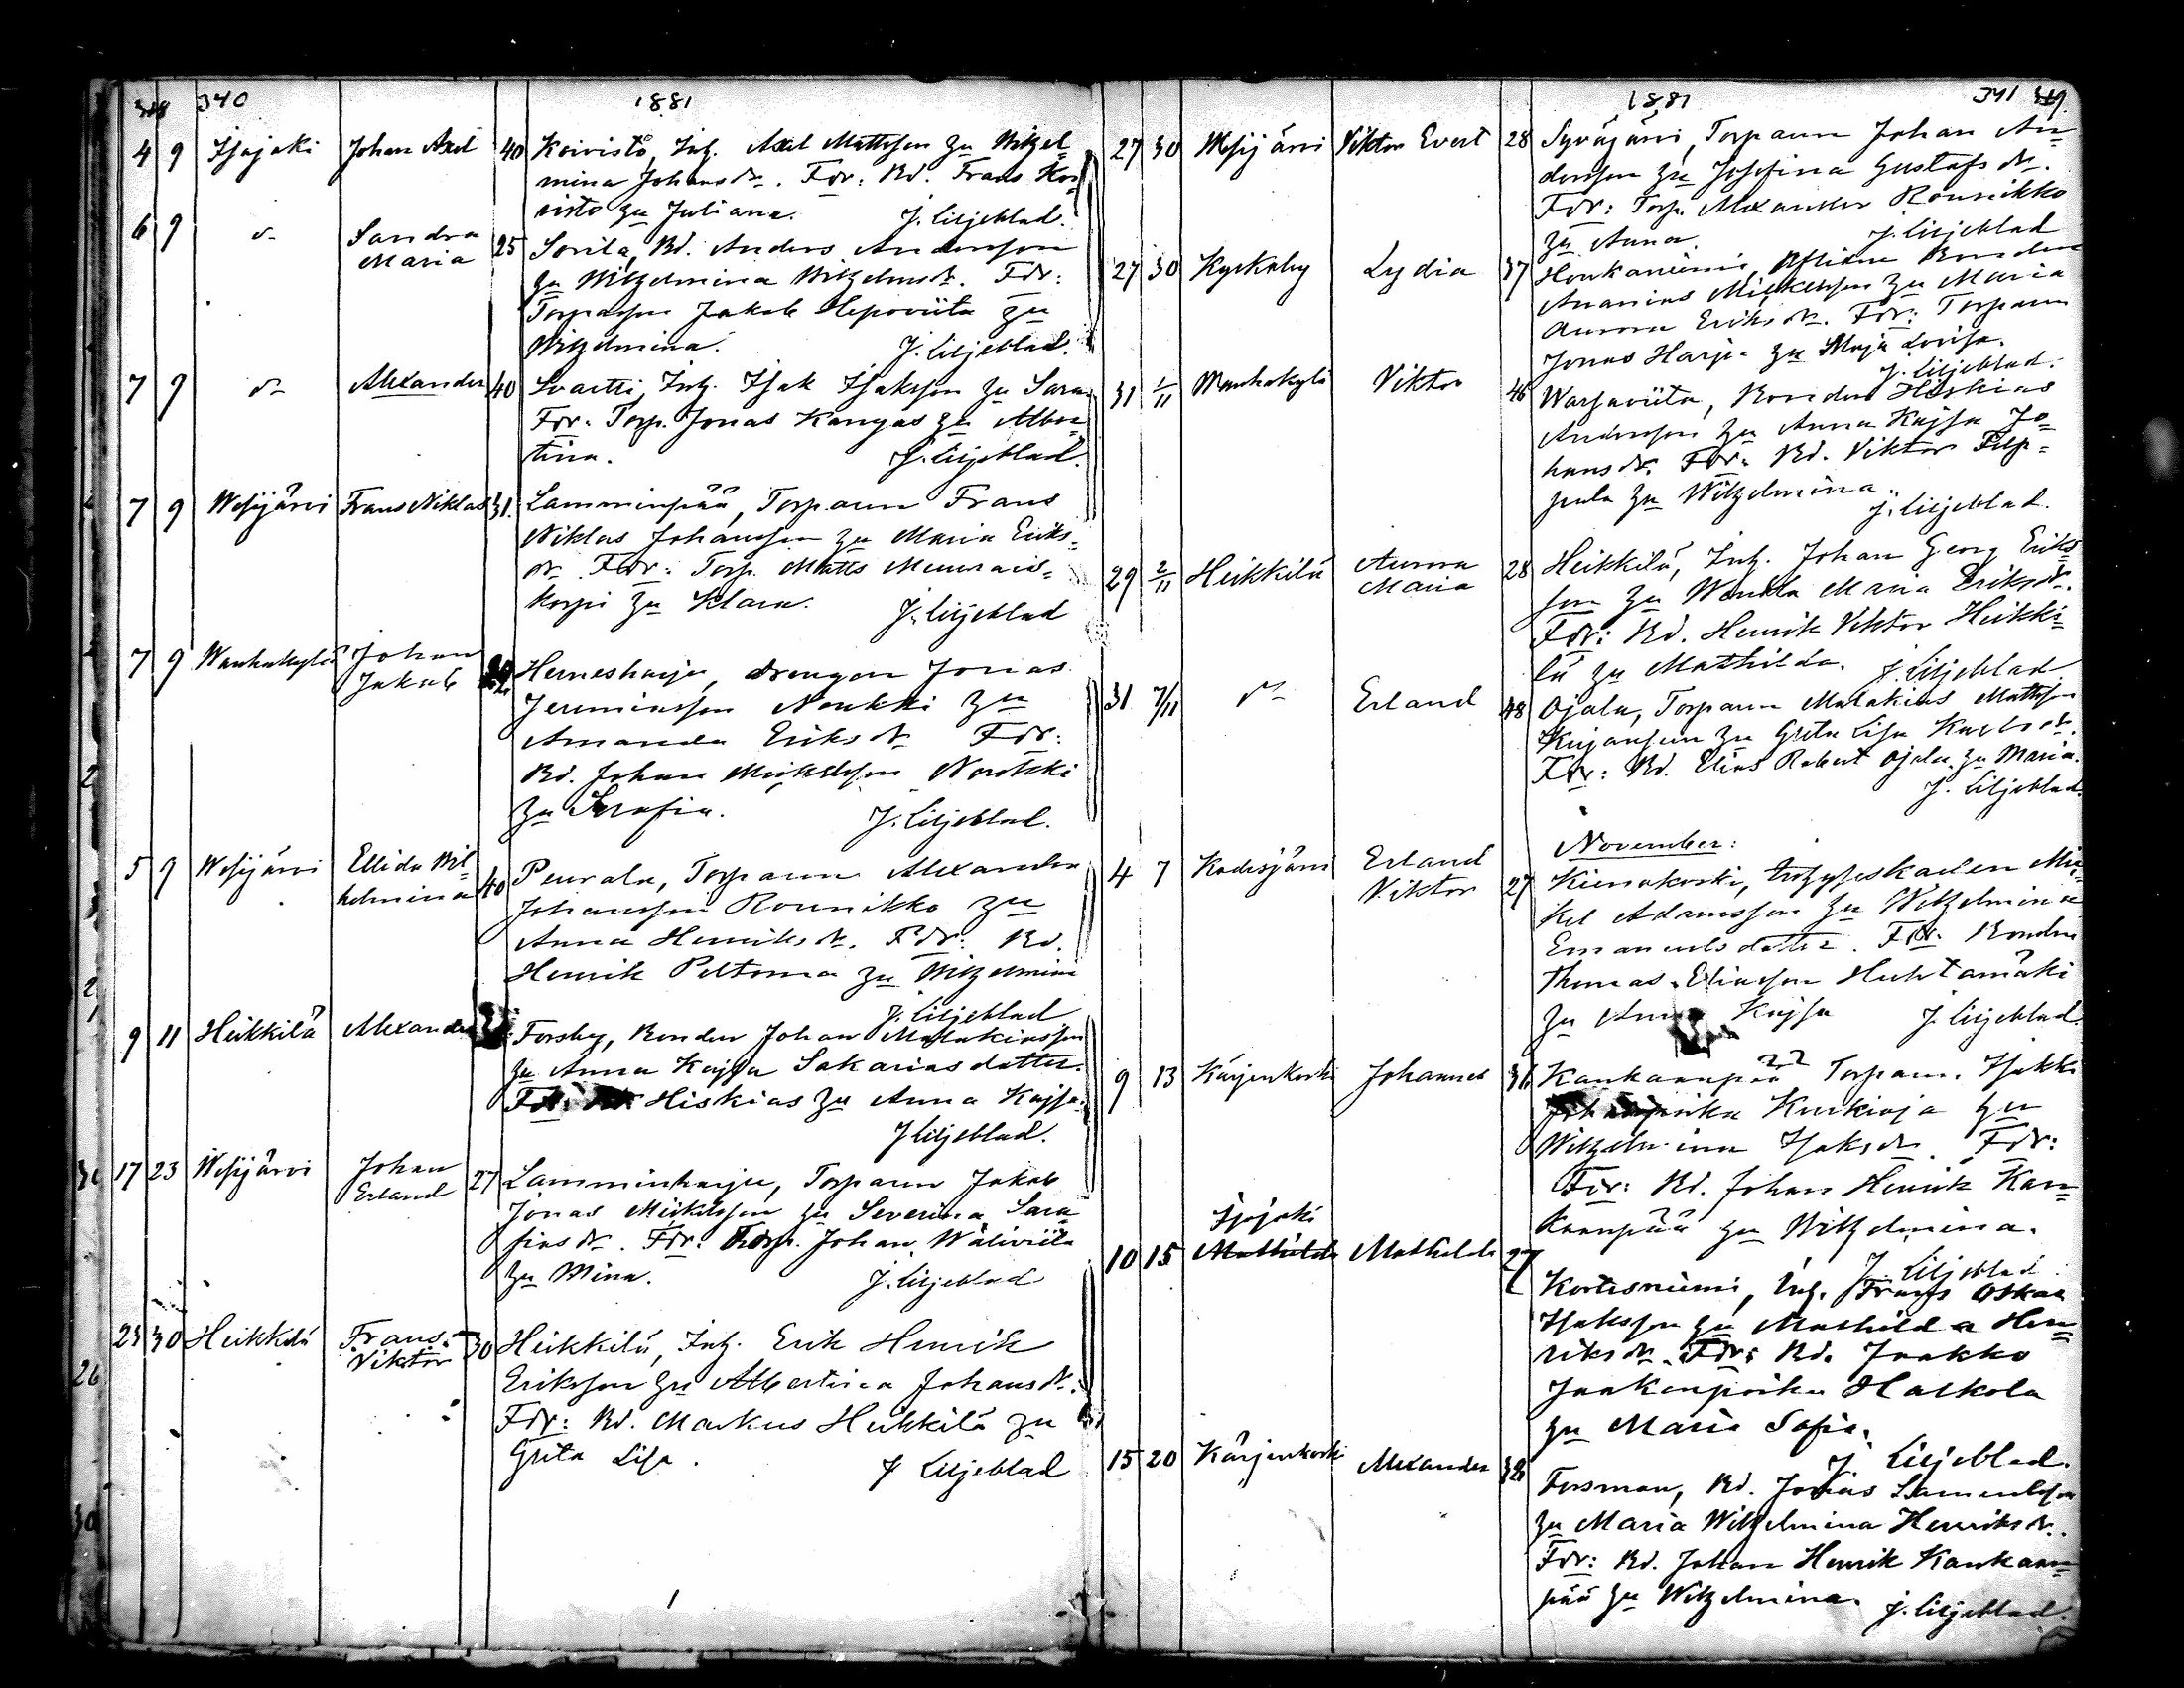 340
1881
4 9 Isojoki Johan Axel 40 Koivisto, Inh. Axel Mattsson hu Wilhel-
mina Johansdr. Fdr: Bd. Frans Koi-
visto hu Juliana. J. Liljeblad.
6 9 d:o Sandra Maria 25 Sorila, Bd. Anders Andersson
hu Wilhelmina Wilhelmsdr. Fdr:
Jakob Hepoviita hu
Wilhelmina. J. Liljeblad.
7 9 d:o Alexander 40 Svartti, Inh. Isak Isaksson hu Sara
Fdr: Torp. Jonas Kangas hu Alber-
tina. J. Liljeblad.
7 9 Wesijärvi Frans Niklas 31. Lamminpää, Torparen Frans
Niklas Johansson hu Maria Eriks-
dr. Fdr: Torp. Matts Muurais-
korpi hu Klara. J. Liljeblad
7 9 Wanhakylä Johan Jakob Hernesharju, drengen Jonas
Jeremiasson Noukki hu
Amanda Eriksdr Fdr:
Bd. Johan Mickelsson
hu Serafia. J. Liljeblad.
5 9 Wesijärvi Ellida Wilhelmina 40 Peurala, Torparen Alexander
Johansson Rounikko hu
Anna Henriksdr. Fdr: Bd.
Henrik Peltoma hu Wilhelmina
J. Liljeblad
9 11 Heikkilä Alexander Forsby, Bonden Johan Malakiasson
hu Anna Kajsa Sakariasdotter.
Fdr: Hiskias hu Anna Kajsa.
J Liljeblad.
17 23 Wesijärvi Johan Erland 27 Lamminharju, Torparen Jakob
Jonas Mickelsson hu Severina Sera-
fiasdr. Fdr: Torp. Johan Wäliviita
hu Mina. J. Liljeblad
23 30 Heikkilä Frans Viktor 30 Heikkilä, Inh. Erik Henrik
Eriksson hu Albertina Johansdr.
Fdr: Bd. Markus Heikkilä hu
Greta Lisa. J Liljeblad
1881
341
27 30 Wesijärvi Viktor Evert 28 Syväjärvi, Torparen Johan An-
dersson hu Josefina Gustafsdr.
Fdr: Torp. Alexander Rounikko
hu Anna. J. Liljeblad
27 30 Kyrkoby Lydia 37 Honkaniemi, Bonden
Ananias Mickelsson hu Maria
Aurora Eriksdr. Fdr: Torparen
Jonas Harju hu Maja Lovisa.
J. Liljeblad.
31 1/11 Wanhakylä Viktor 46 Warsaviita, Bonden Hiskias
Andersson hu Anna Kajsa Jo-
hansdr. Fdr: Bd. Viktor Filp-
pula hu Wilhelmina.
J. Liljeblad.
29 2/11 Heikkilä Aurora Maria 28 Heikkilä, Inh. Johan Georg Eriks-
son hu Wendla Maria Eriksdr.
Fdr: Bd. Henrik Viktor Heikki-
lä hu Mathilda. J. Liljeblad
31 7/11 d:o Erland 48 Ojala, Torparen Malakias Mattsson
hu Greta Lisa Karlsdr.
Fdr: Bd. Elias Robert Ojala hu Maria.
J. Liljeblad.
November:
4 7 Kodisjärvi Erland Viktor 27 Kienokoski, Mi-
kel Adamsson hu Wilhelmina
Emanuelsdotter. Fdr. Bonden
Thomas Eliasson Huhtamäki
hu Anna Kajsa J. Liljeblad.
9 13 Kärjenkoski Johannes 36 Kankaanpää Torparn. Isakki
Kurkioja hu
Wilhelmina Isaksdr. Fdr:
Fdr: Bd. Johan Henrik Kan-
kaanpää hu Wilhelmina.
J Liljeblad
Isojoki
10 15 Mathilda Mathilda 27 Kortesniemi, Inh. Frans Oskar
Isaksson hu Mathilda Hen-
riksdr. Fdr: Bd. Jaakko
Jaakonpoika Harkola
hu Maria Sofia.
J. Liljeblad.
15 20 Kärjenkoski Alexander Forsman, Bd. Jonas Samuelsson
hu Maria Wilhelmina Henriksdr.
Fdr: Bd. Johan Henrik Kankaan-
pää hu Wilhelmina. J. Liljeblad.